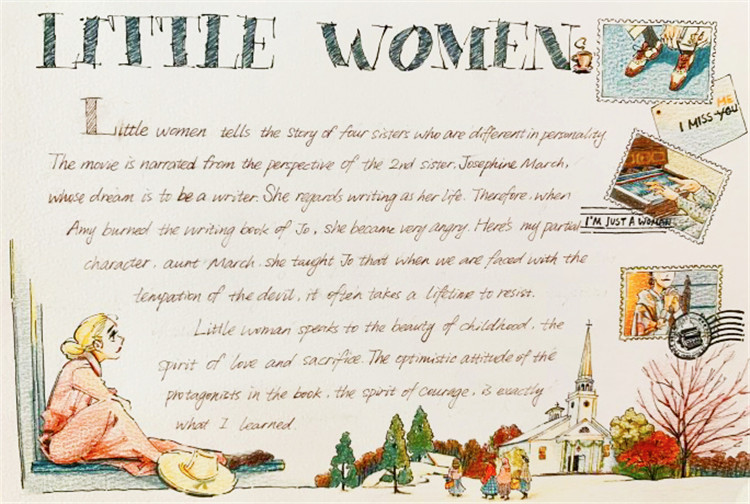 LITTLE WOMEN
Little women tells the story of four sisters who are different in personality
The movie is narrated from the perspective of the 2nd sister, Josephine March,
whose dream is to be a writer. She regards writing as her life. Therefore, when
Amy burned the writing book of Jo, she became very angry. Here's my partial
character, aunt March. she taught Jo that when we are faced with the
tempation of the devil, it often takes a lifetime to resist.
Little woman speaks to the beauty of childhood, the
spirit of love and sacrifice. The optimistic attitude of the
protagonists in the book, the spirit of courage, is exactly
what I learned.
ME
I MISS YOU
I'M JUST A WOMAN